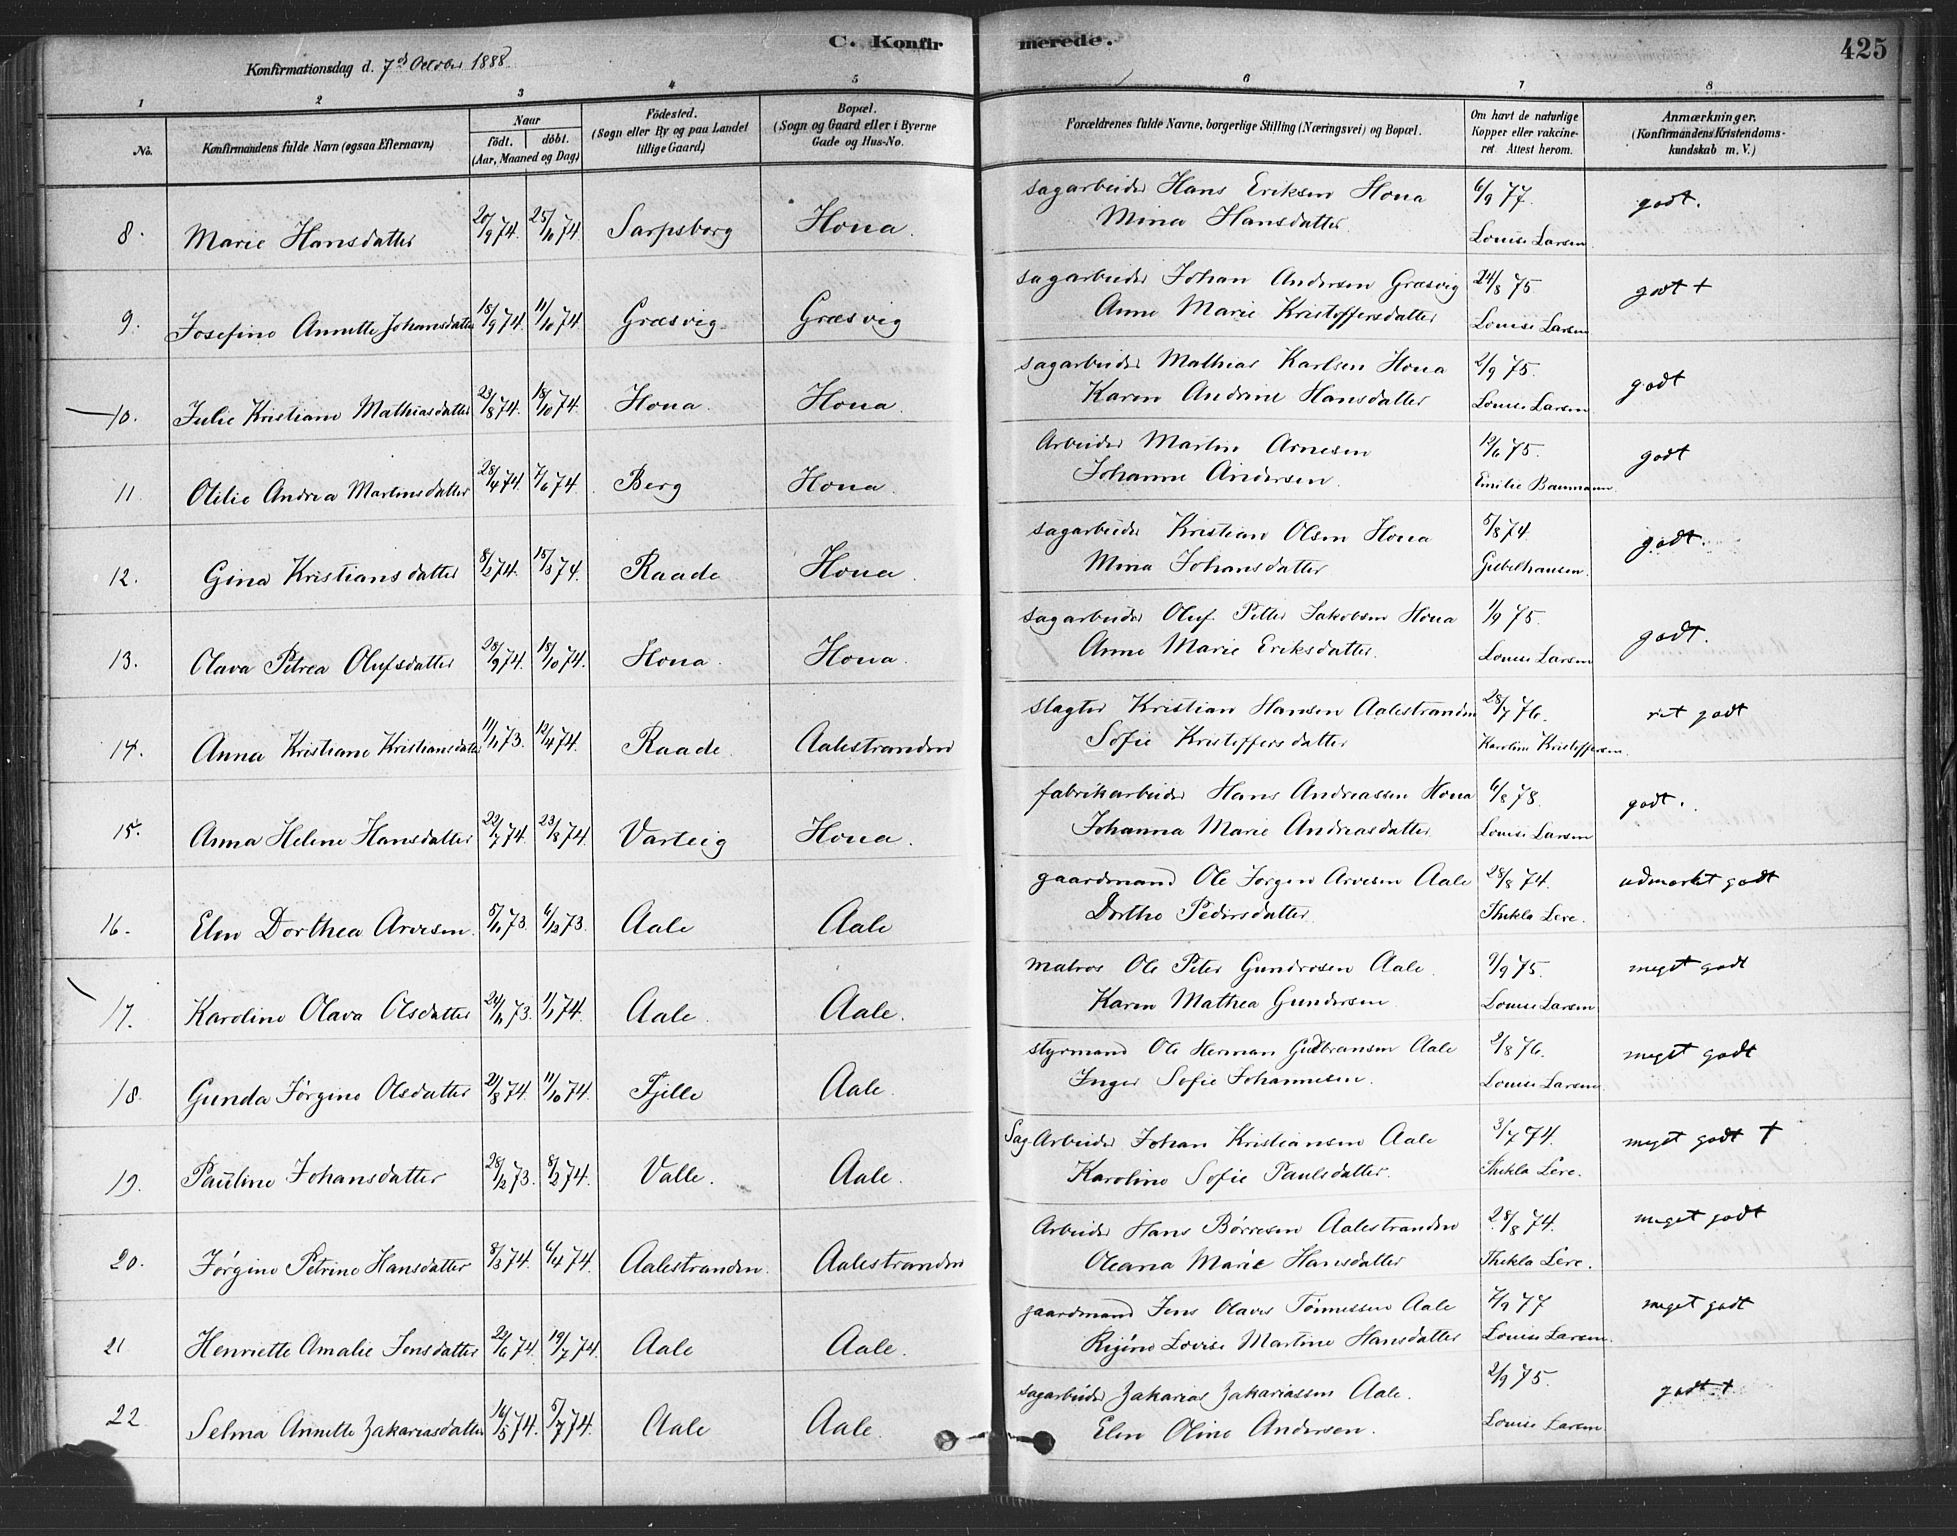 C. Konfirmerede.
425
Konfirmationsdag d. 7d October 1888
1 2 3 4 5 6 7 8
No. Konfirmandens fulde Navn (ogsaa Efternavn) Naar födt. döbt. (Aar, Maaned og Dag) Födested. (Sogn eller By og paa Landet tillige Gaard) Bopæl. (Sogn og Gaard eller i Byerne Gade og Hus-No. Forældrenes fulde Navne, borgerlige Stilling (Næringsvei) og Bopæl. Om havt de naturlige Kopper eller vakcineret. Attest herom. Anmærkninger. (Konfirmandens Kristendomskundskab m. V.)
8. Marie Hansdatter 20/9 74. 25/10 74. Sarpsborg Hona. sagarbeider Hans Eriksen Hona 6/9 77. godt.
Mina Hansdatter. Louise Larsen
9. Josefine Annette Johansdatter 18/9 74. 11/10 74. Græsvig Græsvig sagarbeider Johan Andersen Græsvig 24/8 75. godt +
Anne Marie Kristoffersdatter Louise Larsen
10. Julie Kristiane Mathiasdatter 23/8 74. 18/10 74. Hona. Hona. sagarbeider Mathias Karlsen Hona 2/9 75. godt
Karen Andrine Hansdatter Louise Larsen
11 Otilie Andrea Martinsdatter 28/4 74. 7/6 74. Berg Hona. Arbeider Martin Arnesen 12/6 75. godt
Johanne Andersen. Emilie Baumann.
12. Gina Kristiansdatter 8/2 74. 15/3 74. Raade Hona. sagarbeider Kristian Olsen Hona 5/8 74. godt.
Mina Johansdatter Giebelhausen.
13. Olava Petrea Olufsdatter 28/9 74. 18/10 74. Hona. Hona. sagarbeider Oluf Petter Jakobsen Hona 1/9 75. godt.
Anne Marie Eriksdatter. Louise Larsen
14. Anna Kristiane Kristiansdatter 11/11 73. 12/4 74. Raade. Aalestranden slagter Kristian Hansen Aalestranden 28/7 76. ret godt
Sofie Kristoffersdatter Karoline Kristoffersen.
15. Anna Helene Hansdatter 22/7 74. 23/8 74. Varteig Hona. fabrikarbeider Hans Andreassen Hona 6/8 78. godt.
Johanna Marie Andreasdatter Louise Larsen
16. Elen Dorthea Arvesen. 5/11 73. 6/12 73. Aale Aale gaardmand Ole Jørgen Arvesen Aale 28/8 74. udmerket godt
Dorthe Pedersdatter. Thekla Lere.
17. Karoline Olava Olsdatter 24/11 73. 1/1 74. Aale. Aale. matros Ole Peter Gundersen Aale. 9/9 75. meget godt
Karen Mathea Gundersen. Louise Larsen
18. Gunda Jørgine Olsdatter 21/8 74. 11/10 74. Fjelle Aale. styrmand Ole Herman Gudbransen Aale 2/8 76. meget godt
Inger Sofie Johannesen. Louise Larsen
19. Pauline Johansdatter 28/12 73. 8/2 74. Valle. Aale. Sag Arbeider Johan Kristiansen Aale 3/7 74. meget godt +
Karoline Sofie Paulsdatter. Thekla Lere.
20. Jørgine Petrine Hansdatter 8/3 74. 6/4 74. Aalestranden. Aalestranden Arbeider Hans Børresen Aalestranden 28/8 74. meget godt
Oleana Marie Hansdatter Thekla Lere.
21 Henriette Amalie Jensdatter 24/6 74. 19/7 74. Aale Aale. gaardmand Jens Olaves Tønnessen Aale 7/9 77 meget godt
Lovise Martine Hansdatter Louise Larsen.
22 Selma Annette Zakariasdatter 16/5 74. 5/7 74. Aale Aale. sagarbeider Zakarias Zakariassen Aale. 2/9 75. godt +
Elen Oline Andersen. Louise Larsen